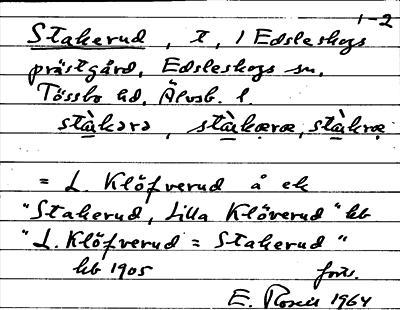 1-2
Stakerud, t, 1 Edsleskogs
prästgård, Edsleskogs sn,
Tössbo hd, Älvsb. l.
stàkərə, stàkæræ, stàkræ
= L. Klöfverud å ek
"Stakerud, Lilla Klöverud" kb
"L. Klöfverud = Stakerud"
kb 1905 forts.
E. Rosell 1964